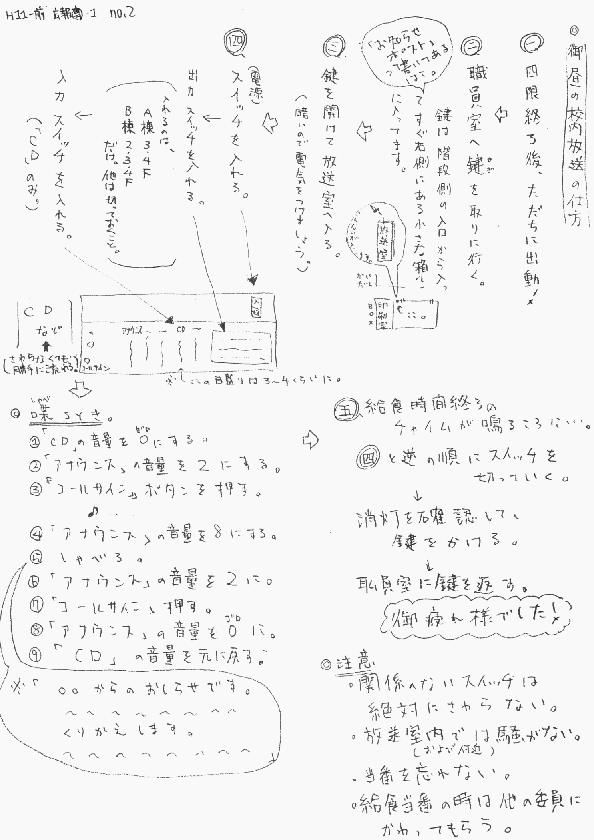 H11-前 広報専-1 no.2
◎御昼の校内放送の仕方
㊀ 四限終了後、ただちに出動!
㊁ 職員室へ鍵を取りに行く。
鍵は階段側の入口から入っ
てすぐ右側にある小さな箱
に入ってます。
「お知らせ
ポスト」
って書いてある
はこ。
放送室
印刷室
㊂ 鍵を開けて放送室へ入る。
(暗いので電気をつけましょう。)
㊃ 電源
スイッチを入れる。
↓
出力スイッチを入れる。
入れるのは、
A棟3・4F
B棟2・3・4F
だけ。他は切っておくこと。
↓
入力スイッチを入れる。
(「CD」のみ。)
入切
アナウンス
CD
コールサイン
CD
など
さわらなくても
勝手に流れる。
※ここの目盛りは3~4くらいに。
◎喋るとき。
しゃべ
①「CD」の音量を0にする。
ゼロ
②「アナウンス」の音量を2にする。
③「コールサイン」ボタンを押す。
♪...
④「アナウンス」の音量を8にする。
⑤ しゃべる。
⑥「アナウンス」の音量を2に。
⑦「コールサイン」押す。
⑧「アナウンス」の音量を0に。
ゼロ
⑨「CD」の音量を元に戻す。
※「○○からのおしらせです。
~~~~~~~
くりかえします。
~~~~~~~
㊄ 給食時間終了の
チャイムが鳴るころ
㊃と逆の順にスイッチを
切っていく。
↓
消灯を確認して、
鍵をかける。
↓
職員室に鍵を返す。
御疲れ様でした!
◎注意
・関係のないスイッチは
絶対にさわらない。
・放送室内では騒がない。
(および付近)
・当番を忘れない。
・給食当番の時は他の委員に
かわってもらう。